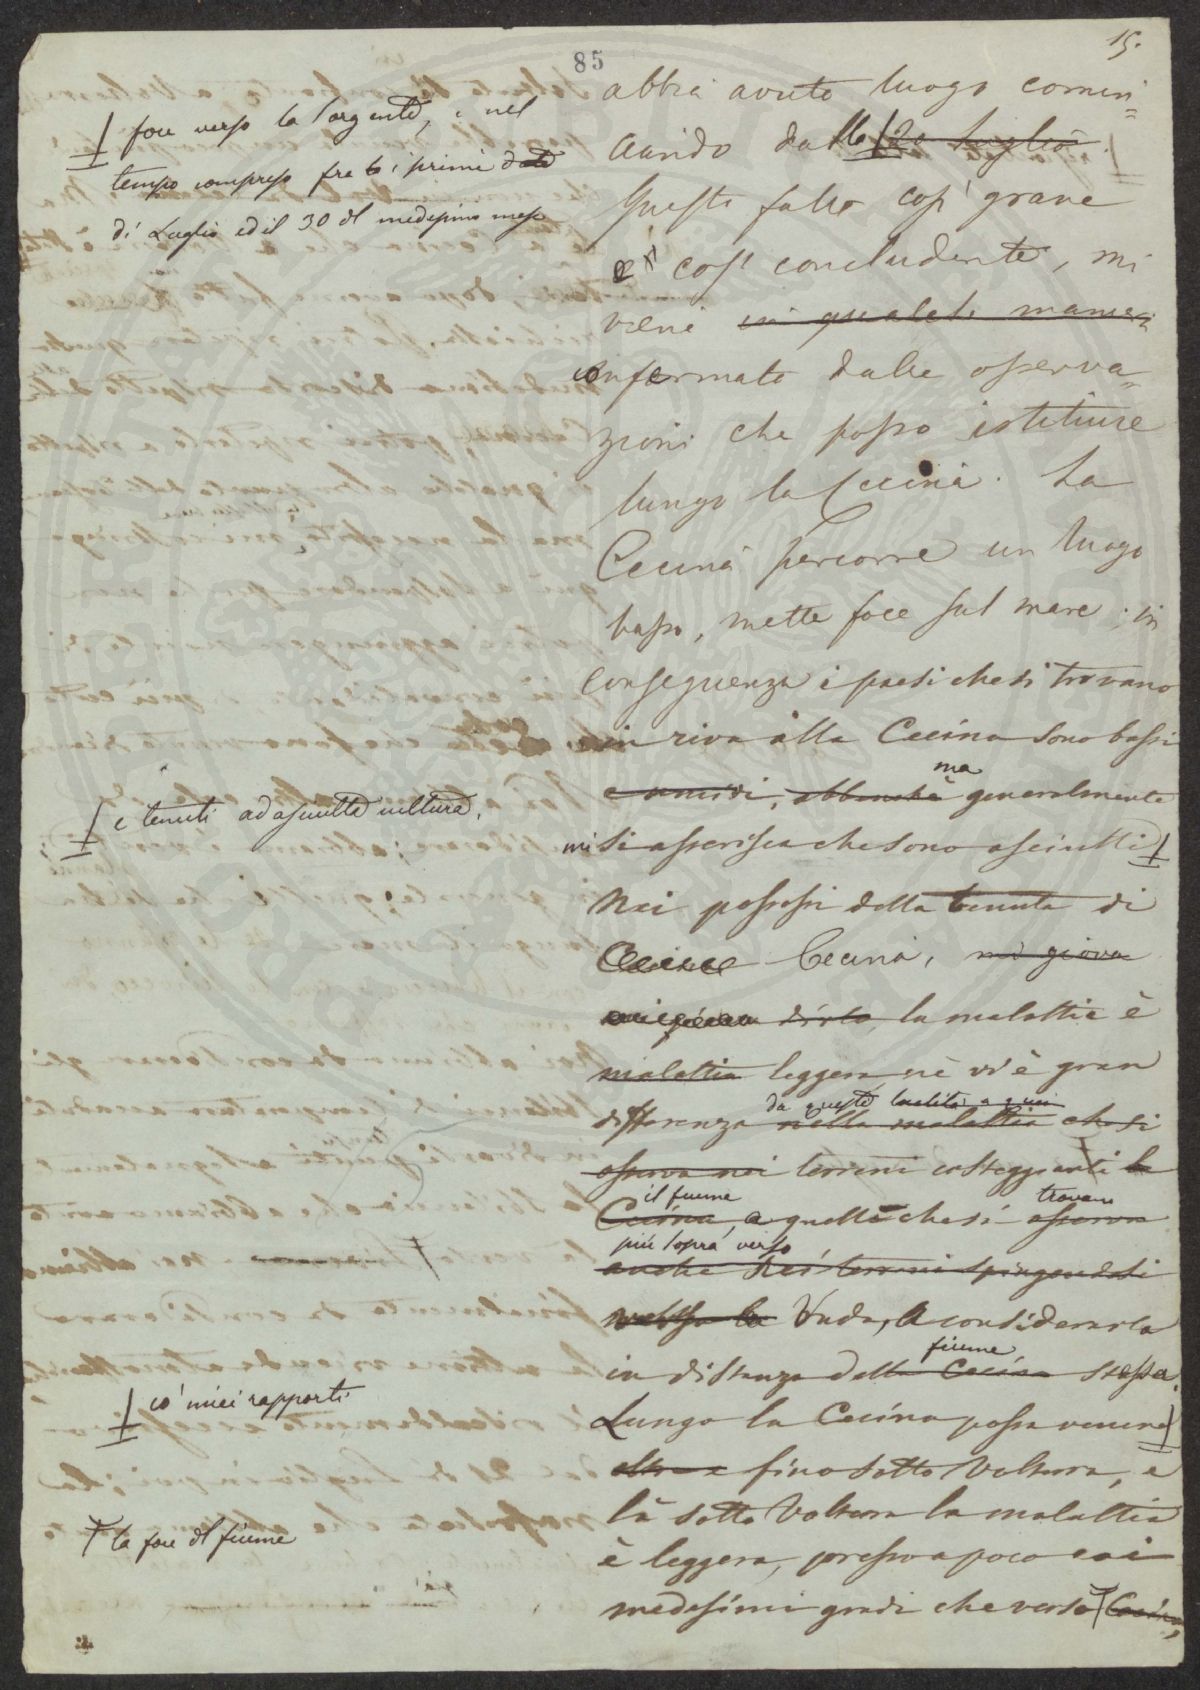 85
15.
abbia avuto luogo comin=
ciando dalle 20 luglio.
Questo fatto così grave
e così concludente, mi
viene in qualche maniera
confermato dalle osserva=
zioni che posso istituire
lungo la Cecina. La
Cecina percorre un luogo
basso, mette foce sul mare; in
conseguenza i paesi che si trovano
in riva alla Cecina sono bassi
e umidi, abbenchè ma generalmente
mi si asserisca che sono asciutti
Nei possessi della tenuta di
Cecina, mi giova
dirlo, la malattia è
malattia leggera nè vi è gran
differenza nella malattia che si
da queste località a quei
osserva nei terreni costeggianti la
il fiume trovano
Cecina, a quelli che si osserva
più sopra verso
anche nei terreni spingendosi
verso la Vada, a considerarla
fiume
in distanza della Cecina stessa.
Lungo la Cecina posso venire
oltre e fino sotto Volterra, e
là sotto Volterra la malattia
è leggera, presso a poco coi
medesimi gradi che verso Cecina,
foce verso la sorgente, e nel
tempo compreso fra i primi
di Luglio ed il 30 del medesimo mese
e tenuti ad asciutta cultura.
co' miei rapporti
la foce del fiume